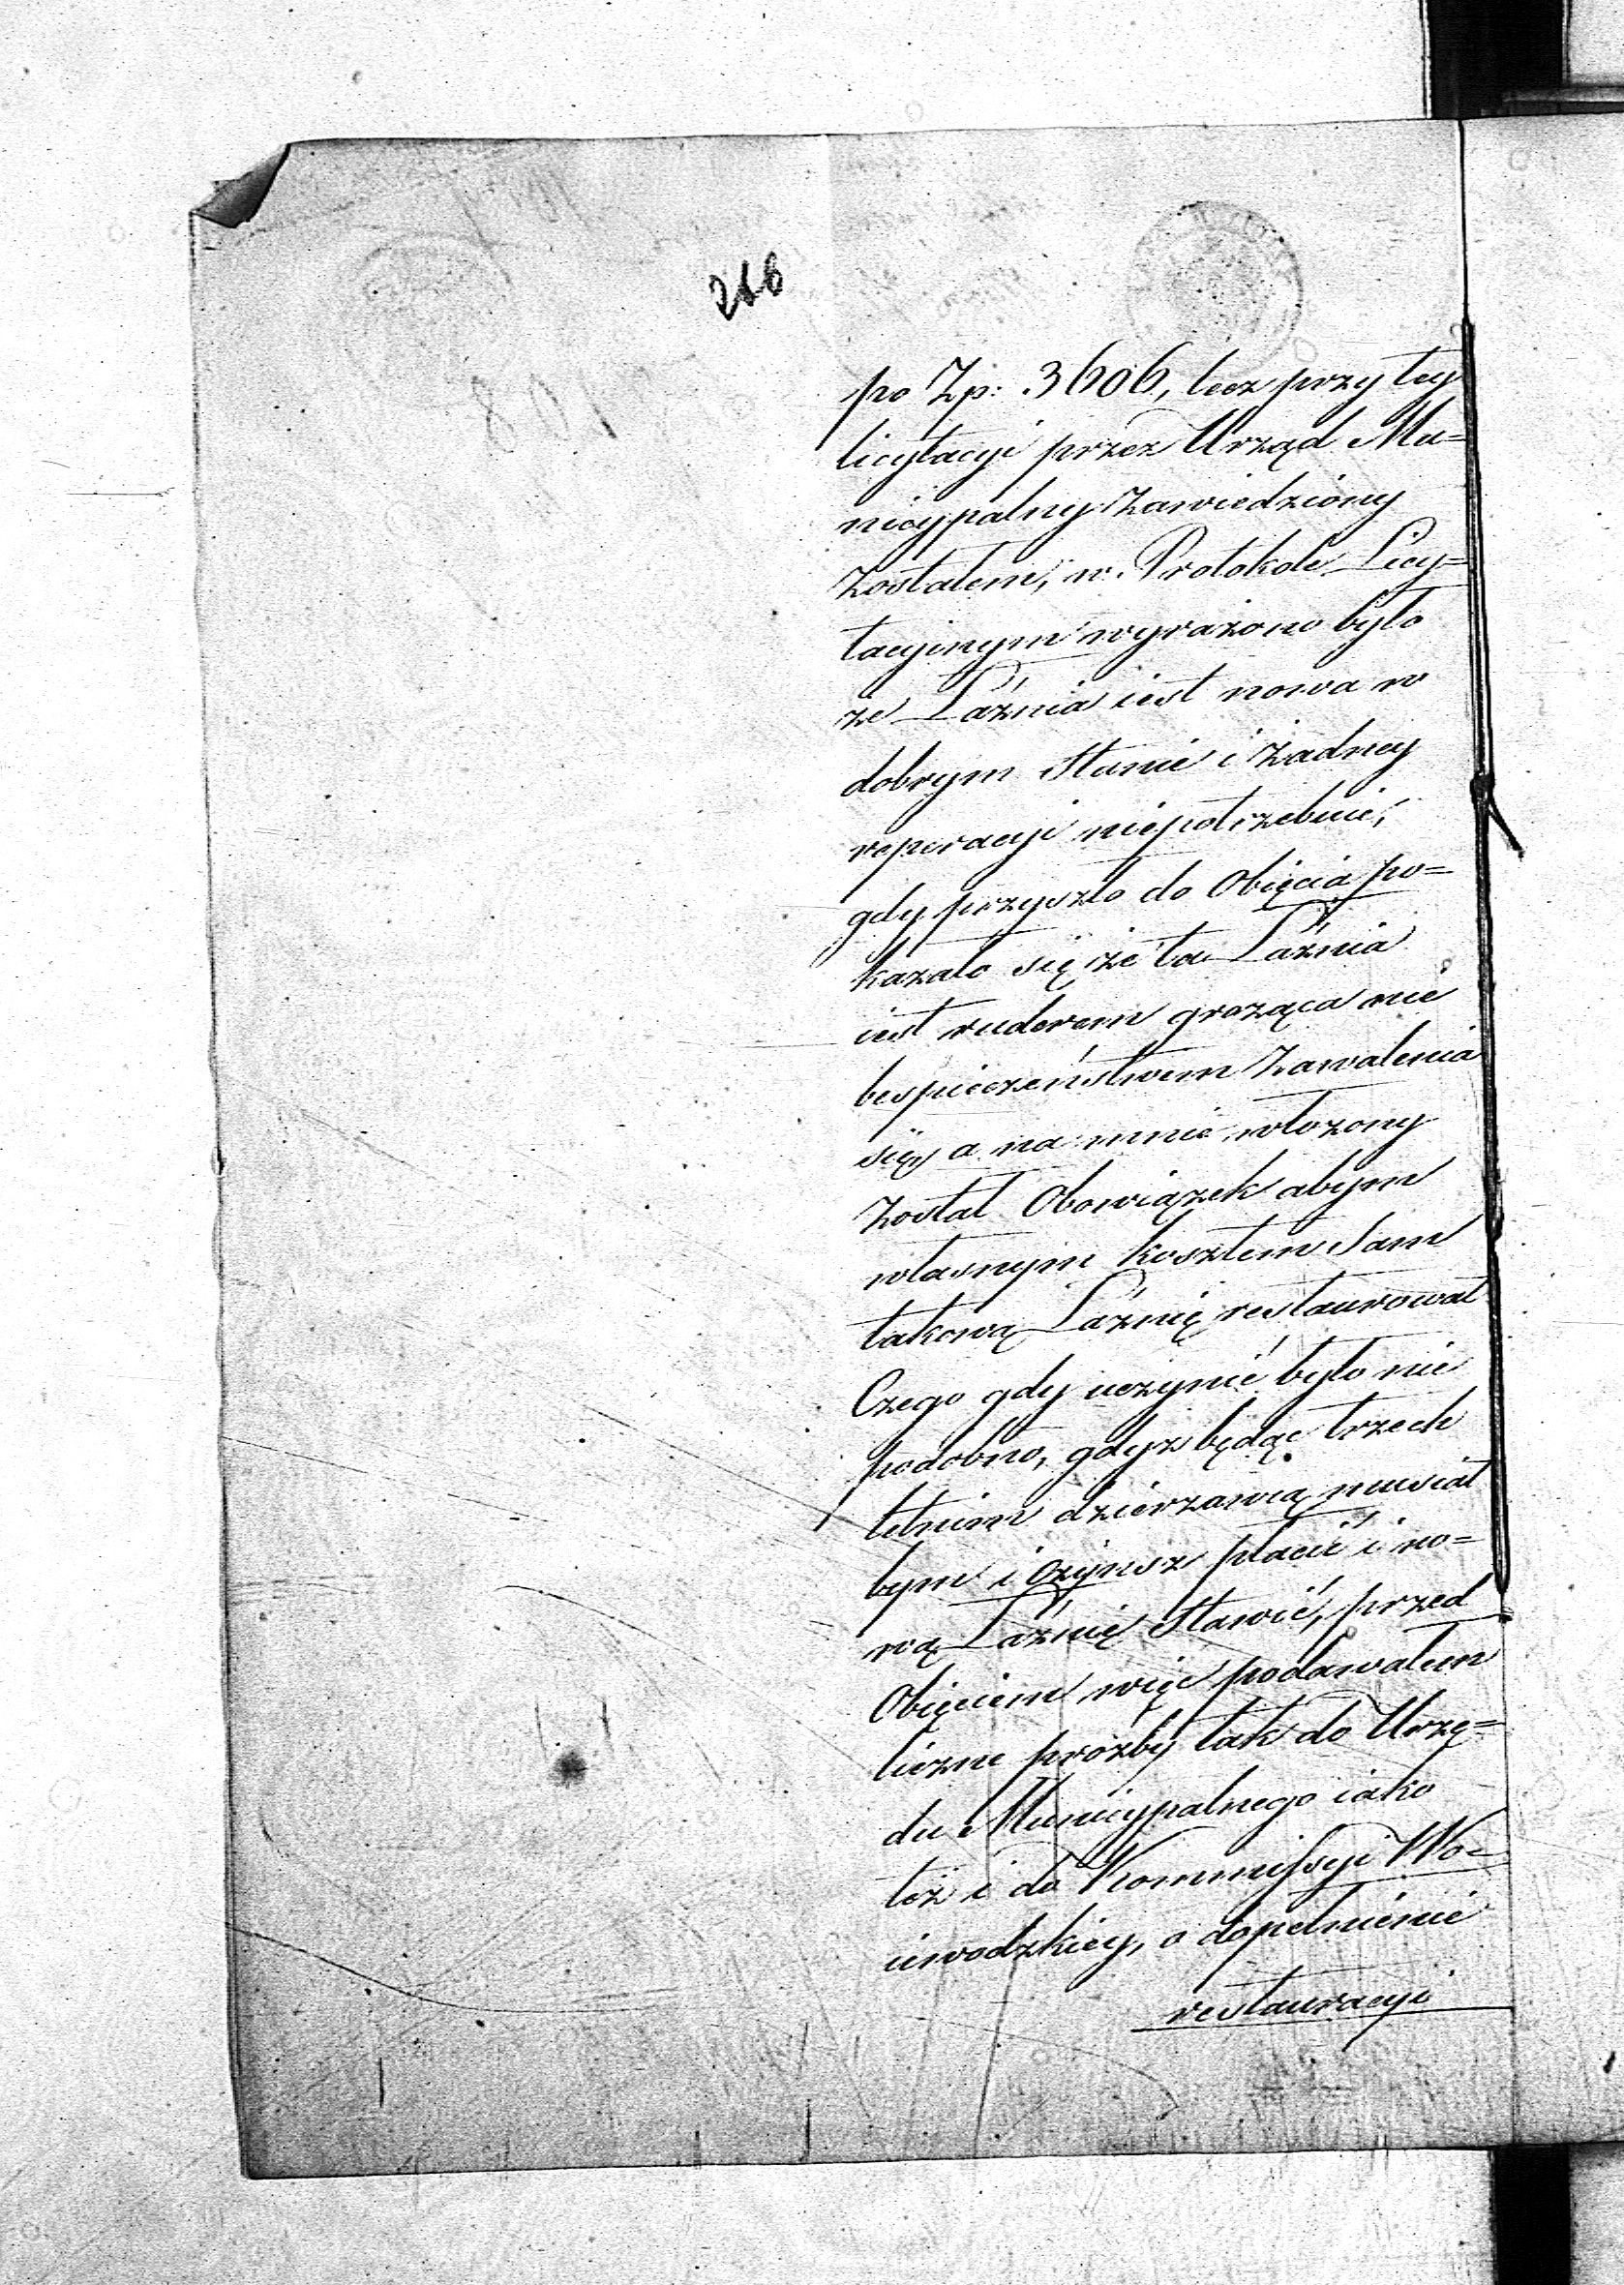 216
po Zp: 3606, lecz przy tey
licytacyi przez Urząd Mu=
nicypalny zawiedziony
zostałem, w Protokole Licy=
tacyinym wyrażono było
że Łaźnia iest nowa w
dobrym stanie i żadney
reperacyi niepotrzebuie,
gdy przyszło do Obięcia po=
kazało się że ta Łaźnia
iest ruderem grożąca nie
bespieczeństwem zawalenia
się, a na mnie włożony
został Obowiązek abym
własnym kosztem sam
takową Łaźnię restaurował
Czego gdy uczynić było nie
podobno, gdyż będąc trzech
letnim dzierzawcą musiał
bym i czynsz płacić i no=
wą Łaźnię stawić, przed
Obięciem więc podawałem
liczne prożby tak do Urzę=
du Municypalnego iako
też i do Kommissyi Wo=
iewodzkiey, o dopełnienie
restauracyi